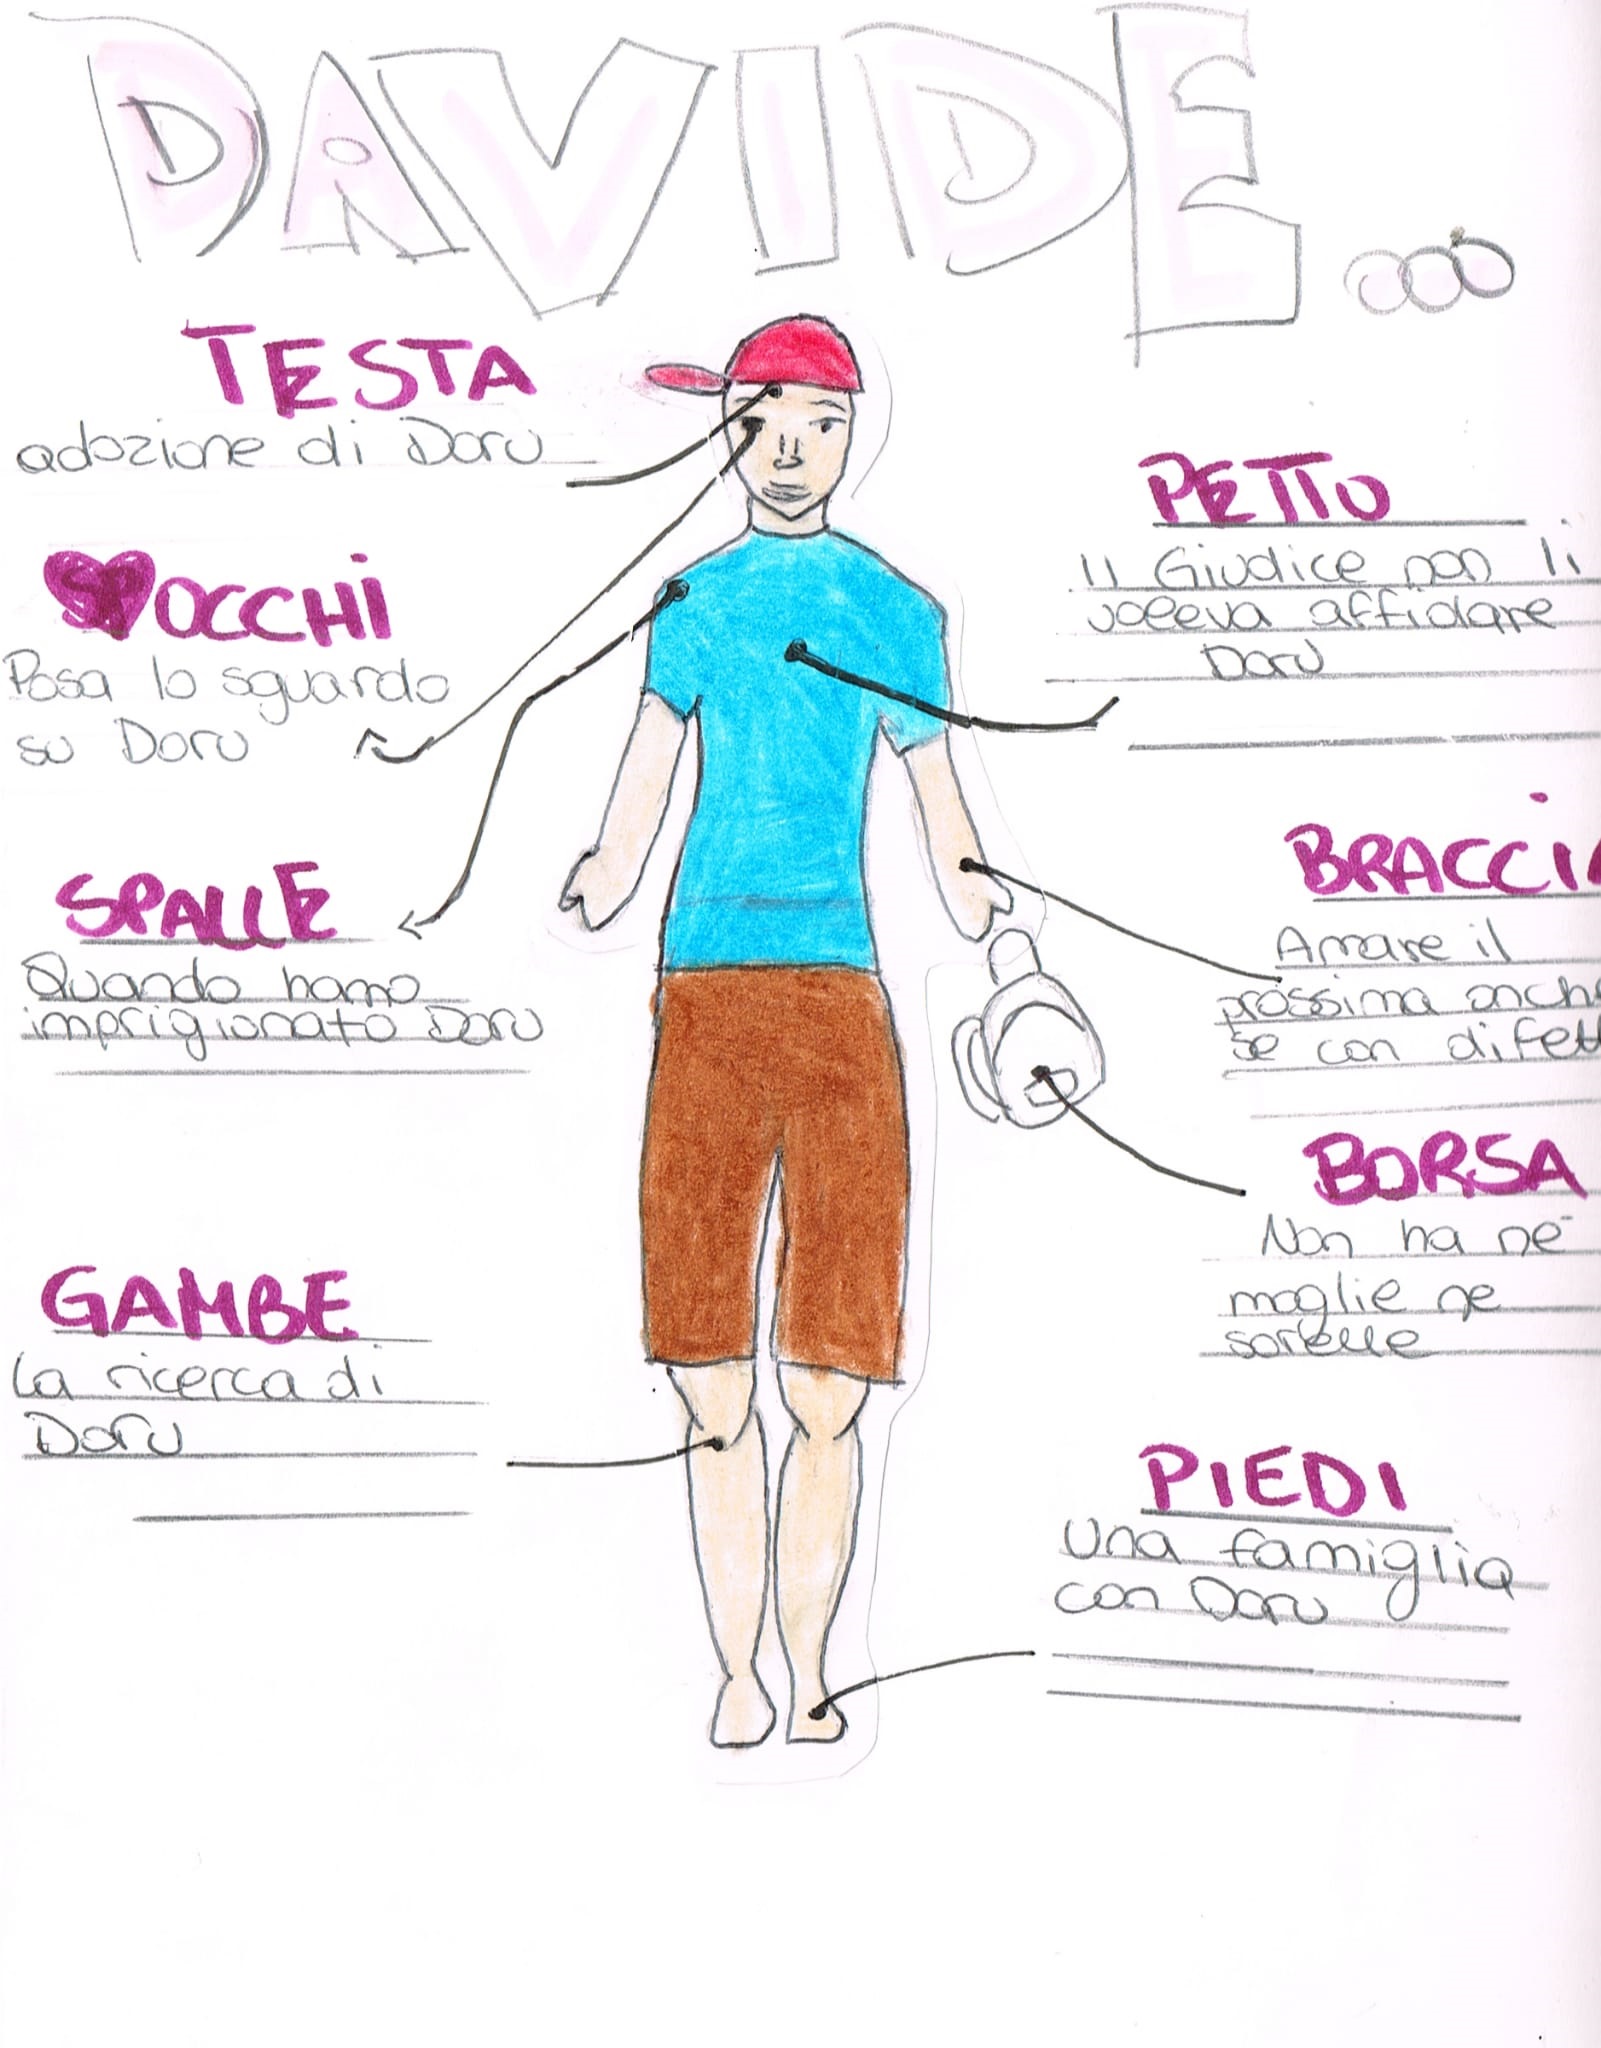 DAVIDE...
TESTA
adozione di Doru
OCCHI
Posa lo sguardo
su Doru
SPALLE
Quando hanno
imprigionato Doru
GAMBE
La ricerca di
Doru
PETTO
Il Giudice non li
voleva affidare
Doru
BRACCIA
Amare il
prossima anche
se con difett
BORSA
Non ha nè
moglie ne
sorelle
PIEDI
Una famiglia
con Doru